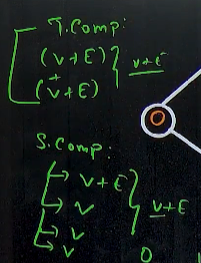 T.Comp:
(V+E)
+
(V+E)
V+E
O
S.Comp:
→ V+E
→ V
→ V
→ V
V+E
O